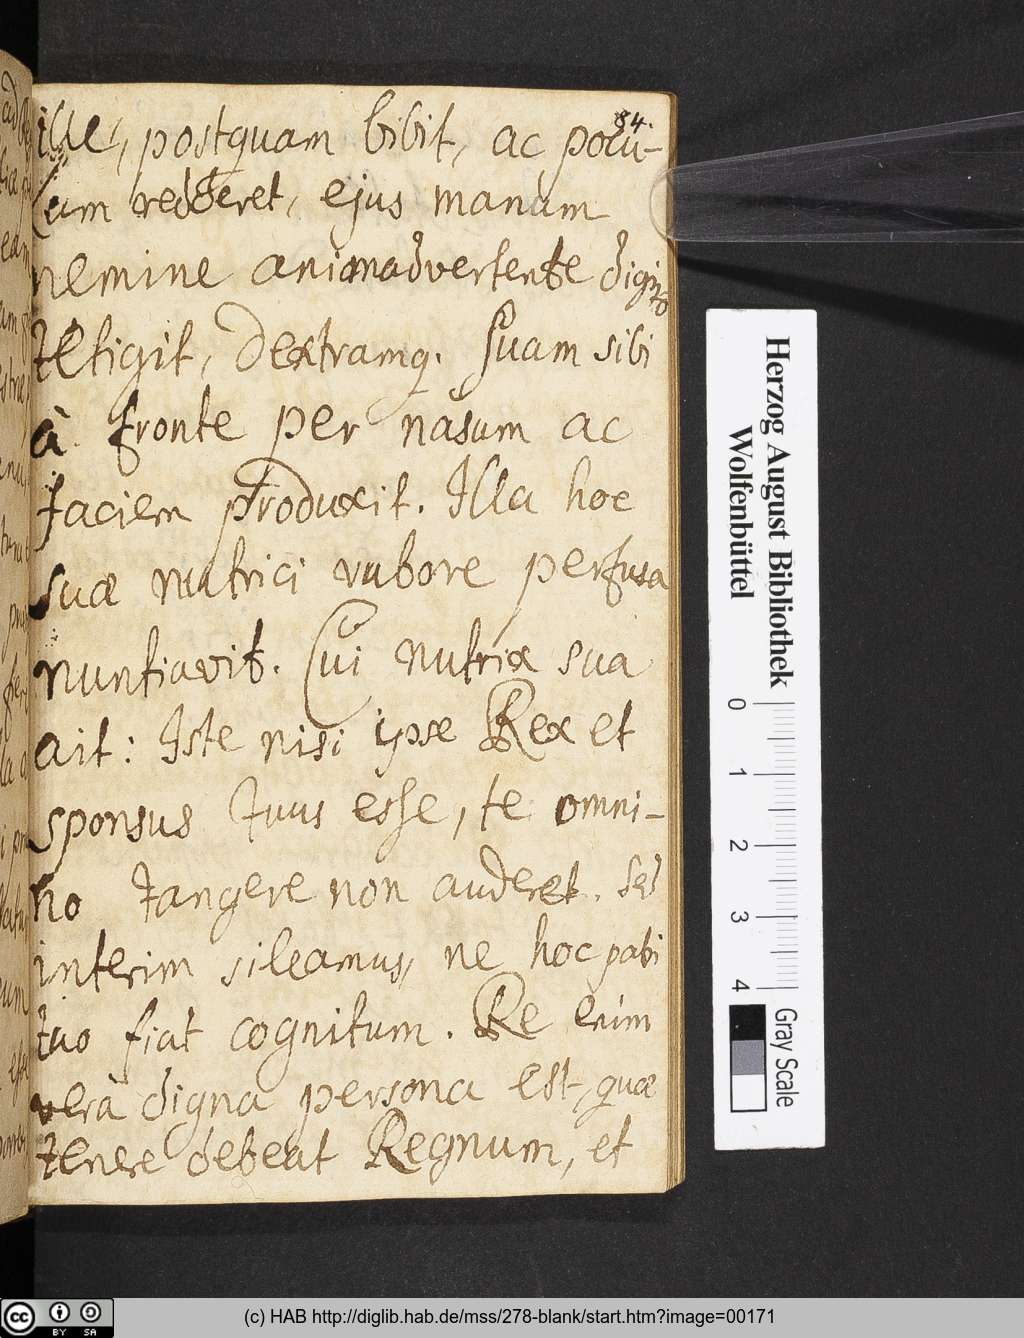 84.
ille, postquam bibit, ac pocu-
lum redderet, ejus manum
nemine animadvertente digito
tetigit, dextramq. suam sibi
à fronte per nasum ac
faciem produxit. Illa hoc
suæ nutrici rubore perfusa
nuntiavit. Cui nutrix sua
ait: Iste nisi ipse Rex et
sponsus tuus esse, te omni-
no tangere non auderet. Sed
interim sileamus, ne hoc patri
tuo fiat cognitum. Re enim
verà digna persona est, quæ
tenere debeat Regnum, et
Herzog August Bibliothek
Wolfenbüttel
0 1 2 3 4
Gray Scale
cc BY SA
(c) HAB http://diglib.hab.de/mss/278-blank/start.htm?image=00171